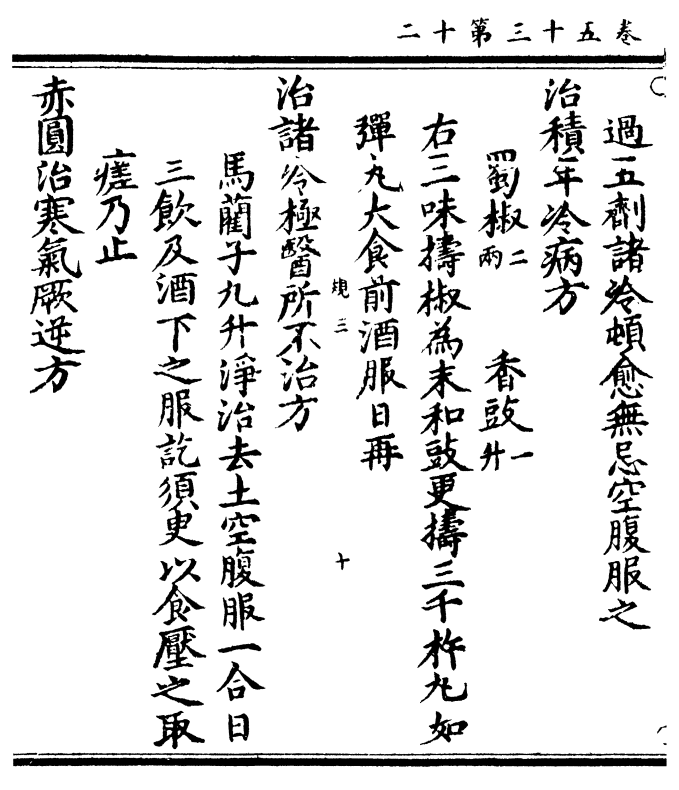 卷五十三第十二
過五劑諸冷頓愈無忌空腹服之
治積年冷病方
蜀椒二兩　香豉一升
右三味擣椒為末和豉更擣三千杵丸如
彈丸大食前酒服日再
規三　十
治諸冷極醫所不治方
馬藺子九升淨治去土空腹服一合日
三飲及酒下之服訖須臾以食壓之取
瘥乃止
赤圓治寒氣厥逆方